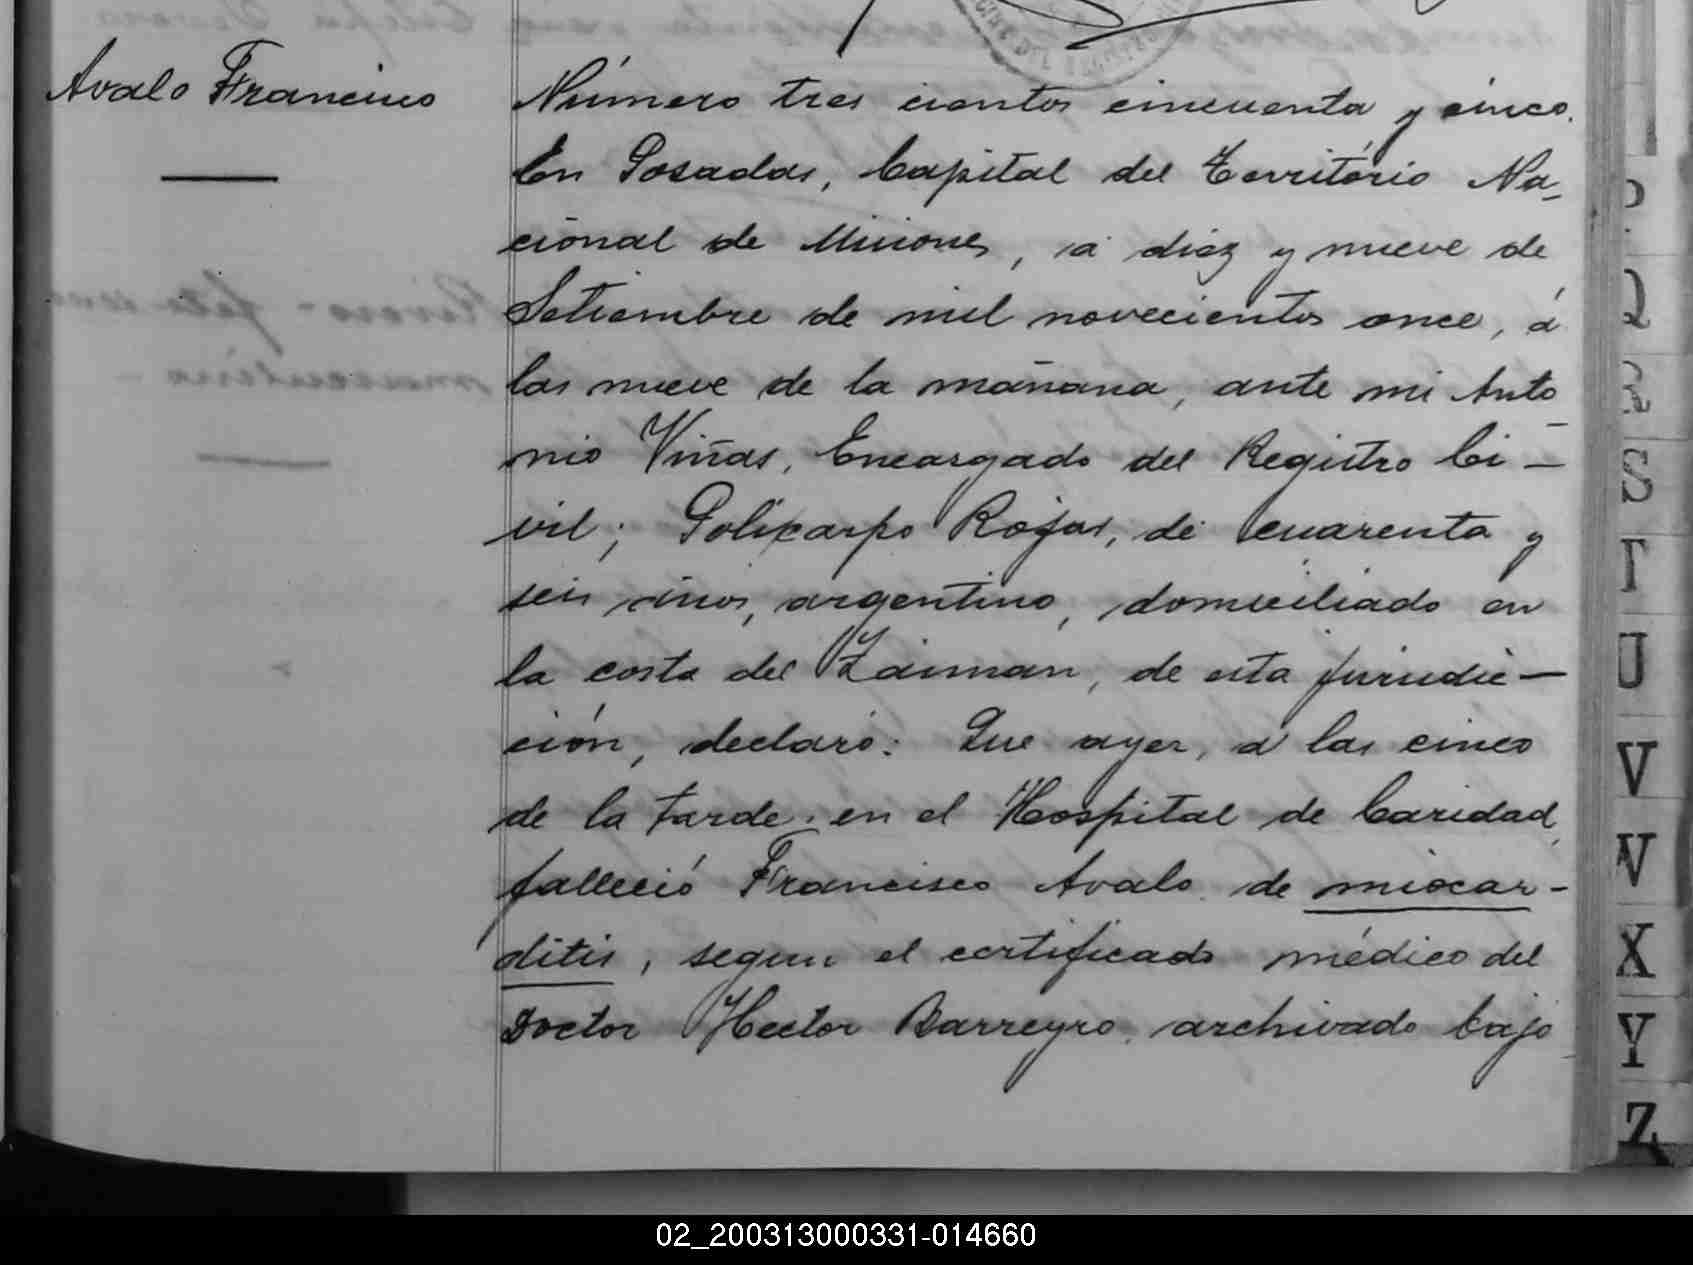 Avalo Francisco
Número tres cientos cincuenta y cinco.
En Posadas, Capital del Territorio Na-
cional de Misiones, á diez y nueve de
Setiembre de mil novecientos once, á
las nueve de la mañana, ante mi Anto
nio Viñas, Encargado del Registro Ci-
vil; Policarpo Rojas, de cuarenta y
seis años, argentino, domiciliado en
la costa del Zaiman, de esta jurisdic-
ción, declaró: Que ayer, á las cinco
de la tarde, en el Hospital de Caridad,
falleció Francisco Avalo de miocar-
ditis, segun el certificado médico del
Doctor Hector Barreyro, archivado bajo
P
Q
R
S
T
U
V
W
X
Y
Z
02_200313000331-014660